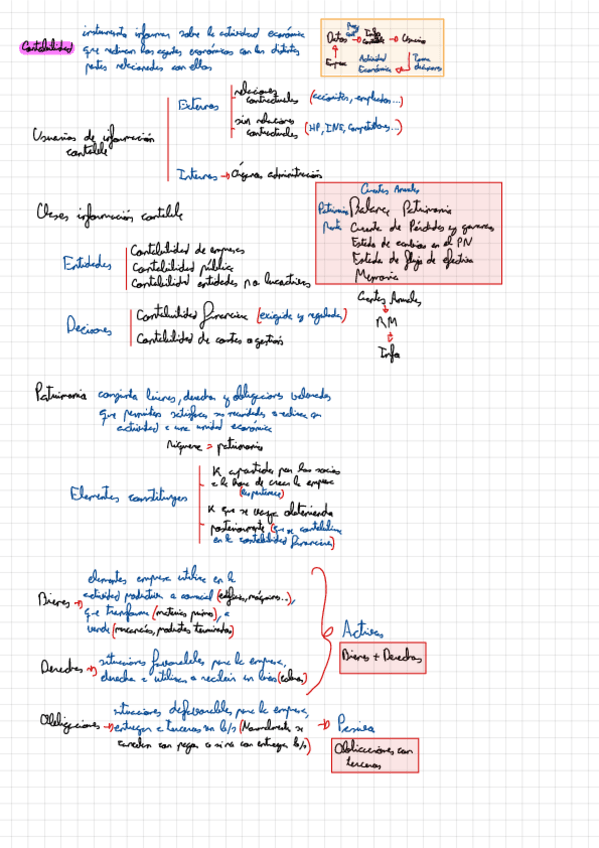 Contabilidad
instrumento informar sobre la actividad económica
que realizan los agentes económicos con las distintas
partes relacionadas con ellos
Datos → Info contable → Usuarios
Empresa
Actividad Económica
Toma decisiones
Usuarios de información contable
Externos
relaciones contractuales (accionistas, empleados...)
sin relaciones contractuales (HP, INE, competidores...)
Internos → Órganos administración
Clases información contable
Cuentas Anuales
Patrimonio Balance Patrimonio
Renta Cuenta de Pérdidas y ganancias
Estado de cambios en el PN
Estado de flujo de efectivo
Memoria
Cuentas Anuales
RM
Info
Entidades
Contabilidad de empresas
Contabilidad pública
Contabilidad entidades no lucrativas
Decisiones
Contabilidad financiera (exigida y regulada)
Contabilidad de costes o gestión
Patrimonio conjunto bienes, derechos y obligaciones valorados
que permiten satisfacer sus necesidades o realizar su
actividad a una unidad económica
Riqueza = patrimonio
Elementos constituyen
K aportado por los socios
a la hora de crear la empresa
K que se vaya obteniendo
posteriormente (que se contabiliza
en la contabilidad financiera)
Bienes →
elementos empresa utiliza en la
actividad productiva o comercial (edificios, máquinas...),
que transforma (materias primas), o
vende (mercancías, productos terminados)
Derechos → situaciones favorables para la empresa,
derecho a utilizar o recibir un bien (cobros)
Activos
Bienes + Derechos
Obligaciones →
situaciones desfavorables para la empresa,
entregar a terceros un b/s (Normalmente se
cancelan con pagos o sino con entrega b/s)
→ Pasivo
Obligaciones con
terceros